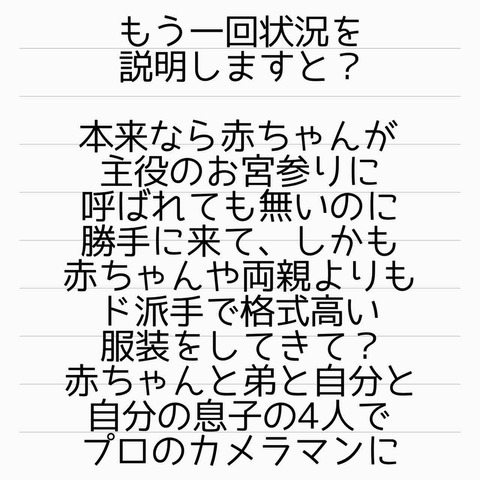 もう一回状況を
説明しますと？
本来なら赤ちゃんが
主役のお宮参りに
呼ばれても無いのに
勝手に来て、しかも
赤ちゃんや両親よりも
ド派手で格式高い
服装をしてきて？
赤ちゃんと弟と自分と
自分の息子の4人で
プロのカメラマンに